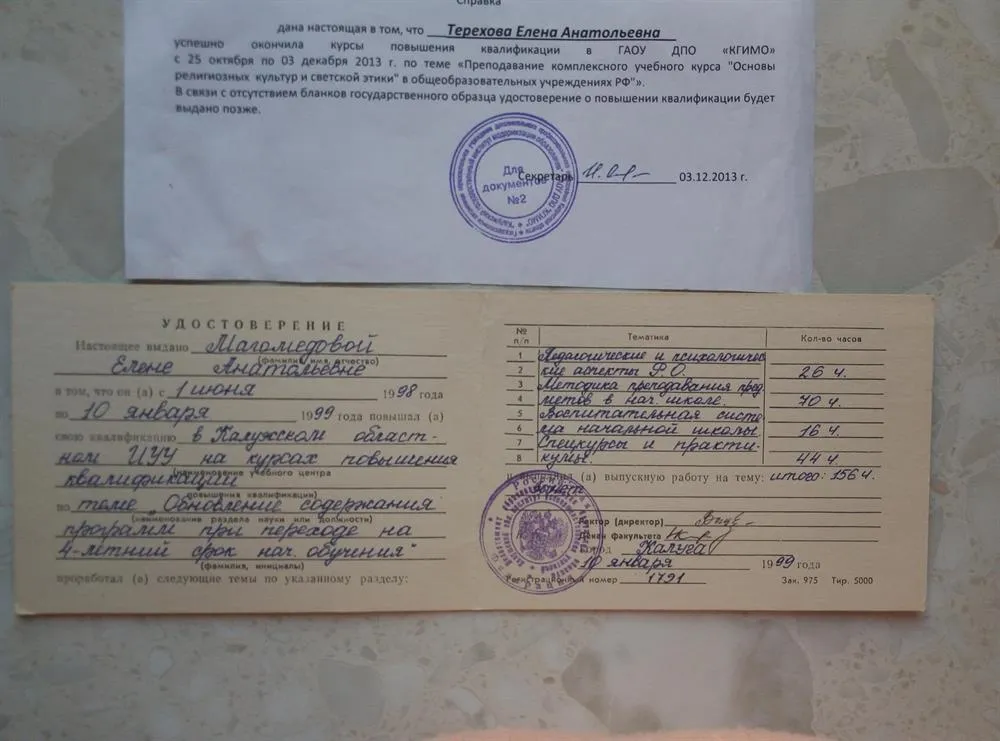 Справка
дана настоящая в том, что Терехова Елена Анатольевна
успешно окончила курсы повышения квалификации в ГАОУ ДПО «КГИМО»
с 25 октября по 03 декабря 2013 г. по теме «Преподавание комплексного учебного курса "Основы
религиозных культур и светской этики" в общеобразовательных учреждениях РФ"».
В связи с отсутствием бланков государственного образца удостоверение о повышении квалификации будет
выдано позже.
Для
документов
№2
Секретарь 03.12.2013 г.
УДОСТОВЕРЕНИЕ
Настоящее выдано Магомедовой
(фамилия, имя, отчество)
Елене Анатольевне
в том, что он (а) с 1 июня 1998 года
по 10 января 1999 года повышал (а)
свою квалификацию в Калужском област-
ном ИУУ на курсах повышения
(наименование учебного центра
квалификации
повышения квалификации)
по теме „Обновление содержания
(наименование раздела науки или должности)
программ при переходе на
4-летний срок нач. обучения"
(фамилия, инициалы)
проработал (а) следующие темы по указанному разделу:
№ п/п Тематика Кол-во часов
1 Педагогические и психологичес-
2 кие аспекты Р.О. 26 ч.
3 Методика преподавания пред-
4 метов в нач. школе. 70 ч.
5 Воспитательная систе-
6 ма начальной школы. 16 ч.
7 Спецкурсы и практи-
8 кумы. 44 ч.
(а) выпускную работу на тему: итого: 156 ч.
Ректор (директор)
Декан факультета
город Калуга
10 января 1999 года
Регистрационный номер 1791 Зак. 975 Тир. 5000